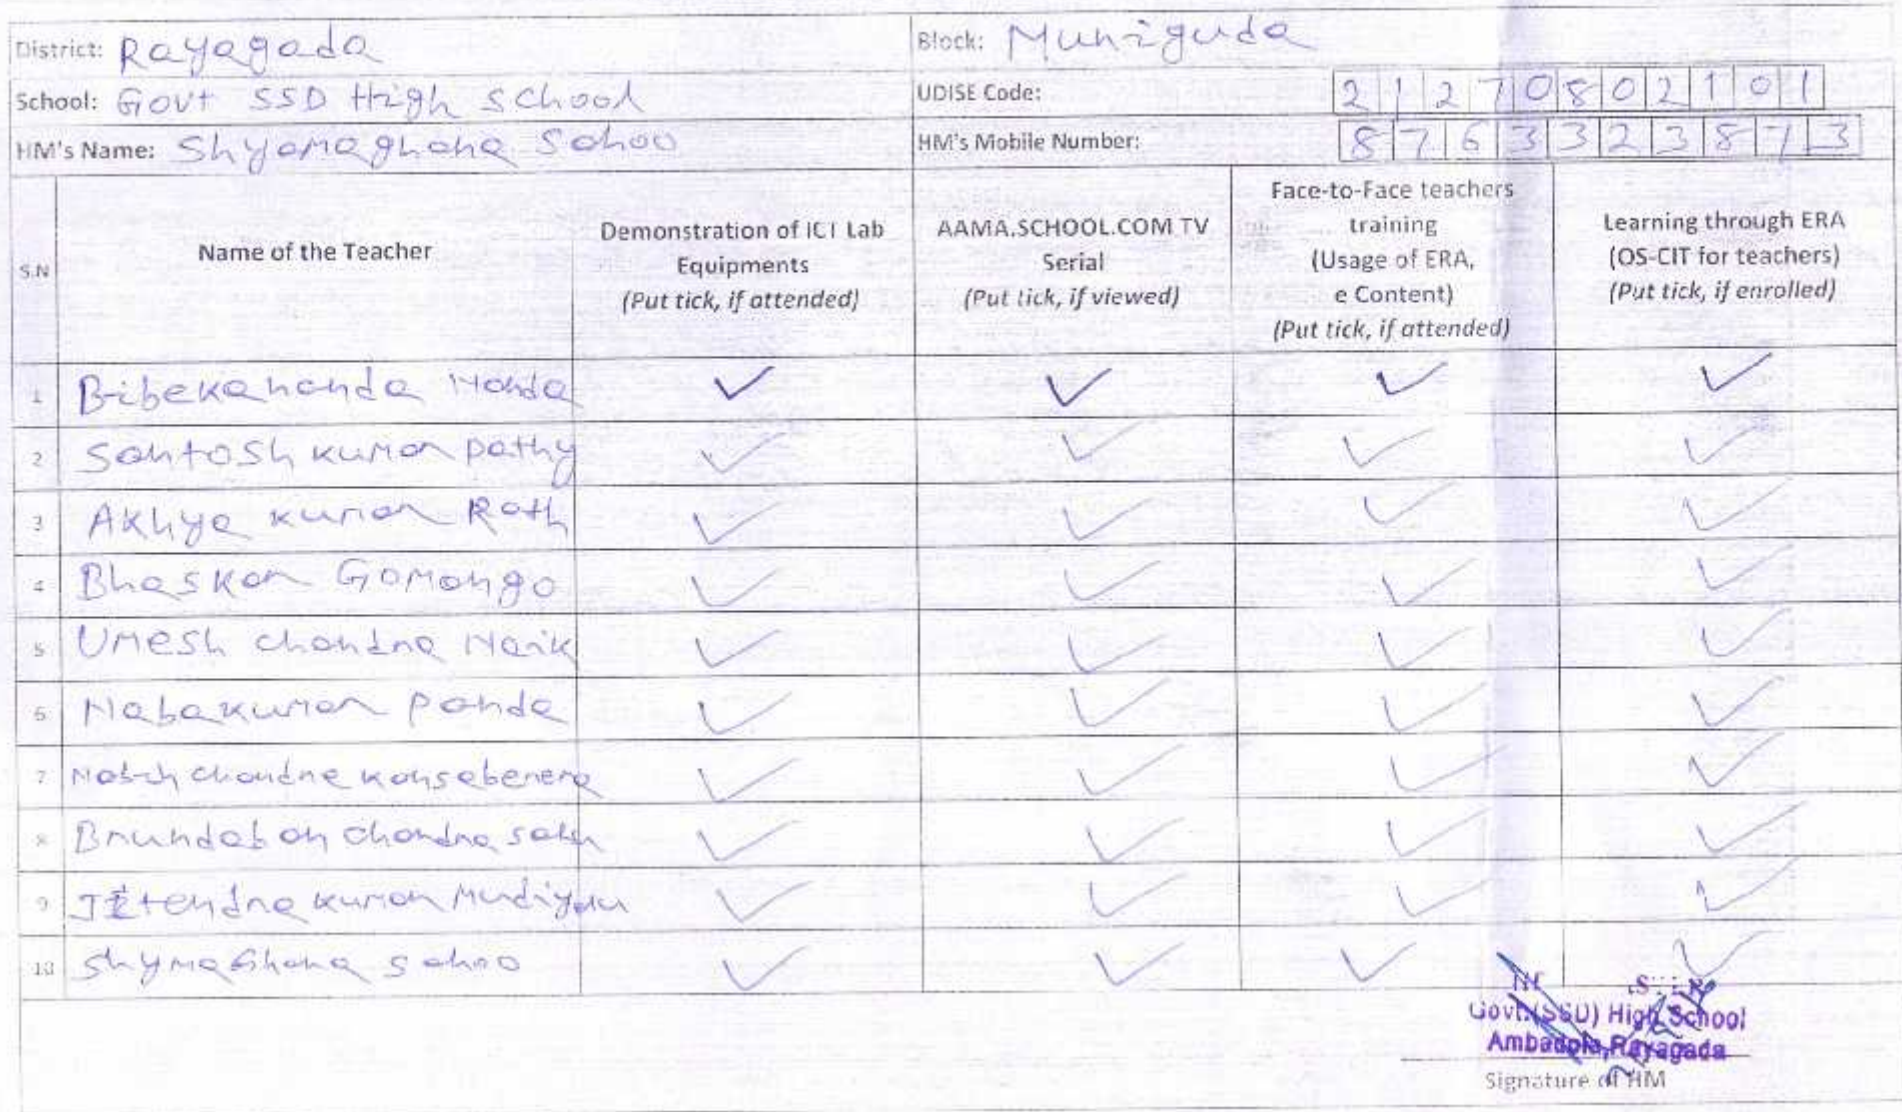 District: Rayagada Block: Muniguda
School: Govt SSD High School UDISE Code: 21270802101
HM's Name: Shyamaghana Sahoo HM's Mobile Number: 8763323873
S.N Name of the Teacher Demonstration of ICT Lab Equipments (Put tick, if attended) AAMA.SCHOOL.COM TV Serial (Put tick, if viewed) Face-to-Face teachers training (Usage of ERA, e Content) (Put tick, if attended) Learning through ERA (OS-CIT for teachers) (Put tick, if enrolled)
1 Bibekananda Nanda ✓ ✓ ✓ ✓
2 Santosh kumar pathy ✓ ✓ ✓ ✓
3 Akhya kumar Rath ✓ ✓ ✓ ✓
4 Bhaskar Gomango ✓ ✓ ✓ ✓
5 Umesh chandra Naik ✓ ✓ ✓ ✓
6 Nabakumar panda ✓ ✓ ✓ ✓
7 Nabin chandra ✓ ✓ ✓ ✓
8 Brundaban chandra sahu ✓ ✓ ✓ ✓
9 Jitendra kumar ✓ ✓ ✓ ✓
10 Shymaghana sahoo ✓ ✓ ✓ ✓
Govt.(SSD) High School
Ambadola, Rayagada
Signature of HM